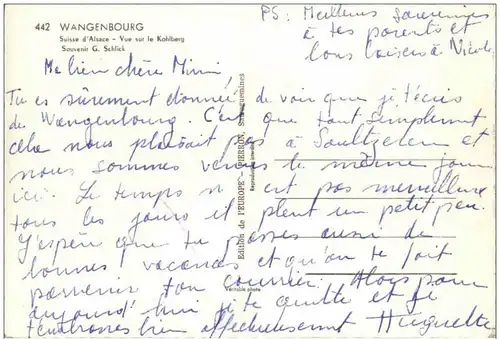 442 WANGENBOURG
Suisse d'Alsace - Vue sur le Kohlberg
Souvenir G. Schlick
PS: Meilleurs souvenirs
à tes parents et
bons baisers à Nicole
Ma bien chère Mimi
Tu es sûrement étonnée de voir que je t'écris
de Wangenbourg. C'est que tout simplement
cela nous plaisait pas à
nous sommes venus le même jour
ici. Le temps n'est pas merveilleux
tous les jours il pleut un petit peu.
J'espère que tu passes aussi de
bonnes vacances et qu'on te fait
parvenir ton courrier. Alors pour
aujourd'hui je te quitte et je
t'embrasse bien affectueusement Huguette
Edition de l'EUROPE - PIERRON, Sarreguemines
Reproduction interdite
Véritable photo